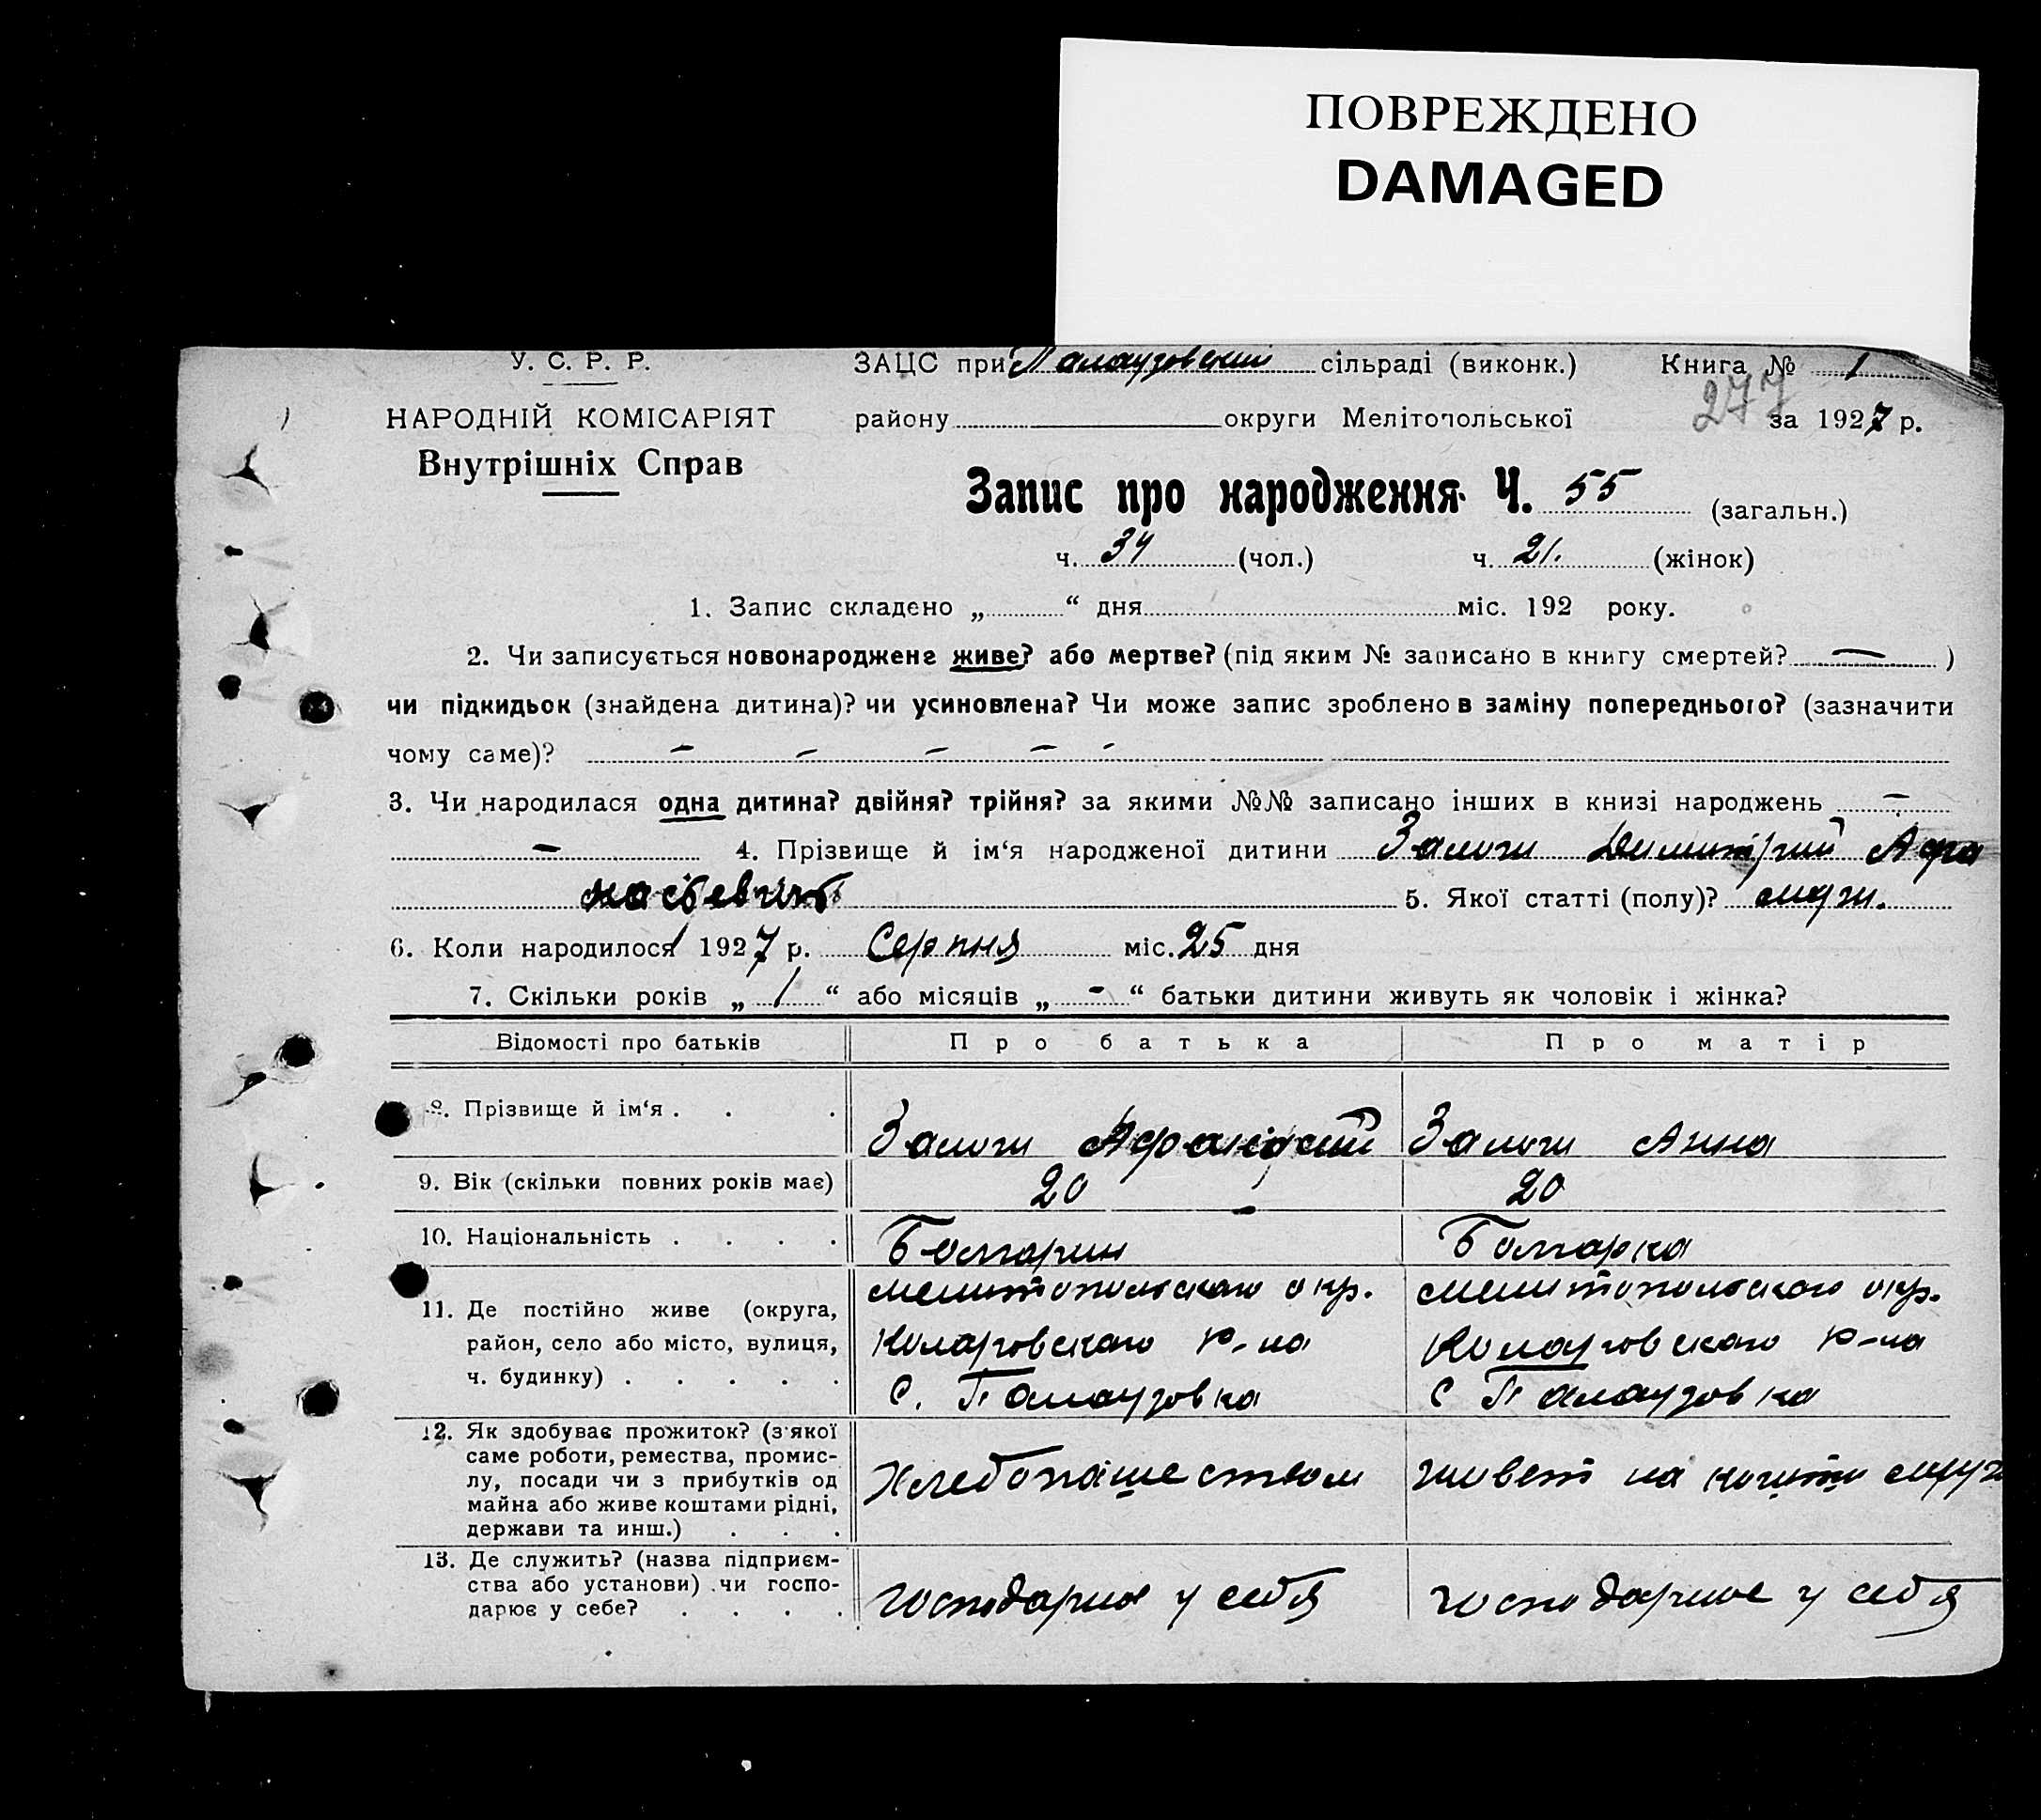 ПОВРЕЖДЕНО
DAMAGED
У. С. Р. Р.
ЗАЦС при Палаузовский сільраді (виконк.) Книга № 1
277
НАРОДНІЙ КОМІСАРІЯТ
району округи Мелітопольської за 1927 р.
Внутрішніх Справ
Запис про народження Ч. 55 (загальн.)
ч. 34 (чол.) ч. 21. (жінок)
1. Запис складено „ “ дня міс. 192 року.
2. Чи записується новонароджене живе? або мертве? (під яким № записано в книгу смертей? — )
чи підкидьок (знайдена дитина)? чи усиновлена? Чи може запис зроблено в заміну попереднього? (зазначити
чому саме)? — — — — -
3. Чи народилася одна дитина? двійня? трійня? за якими №№ записано інших в книзі народжень —
— 4. Прізвище й ім‘я народженої дитини Димитрий Афа
насьевичъ 5. Якої статті (полу)? муж.
6. Коли народилося 1927 р. Серпня міс. 25 дня
7. Скільки років „ 1 “ або місяців „ - “ батьки дитини живуть як чоловік і жінка?
Відомості про батьків Про батька Про матір
8. Прізвище й ім‘я . . . Афанасий Анна
9. Вік (скільки повних років має) 20 20
10. Національність . . . . Болгарин Болгарка
11. Де постійно живе (округа,
район, село або місто, вулиця,
ч. будинку) . . . . .
Мелитопольскаго окр. Мелитопольскаго окр.
Коларовскаго р-на Коларовскаго р-на
С. Палаузовка С Палаузовка
12. Як здобуває прожиток? (з'якої
саме роботи, ремества, промис-
лу, посади чи з прибутків од
майна або живе коштами рідні,
держави та инш.) . . .
Хлебопашеством живет на кошти мужа
13. Де служить? (назва підприєм-
ства або установи) чи госпо-
дарює у себе? . . . .
господарює у себя господарює у себя